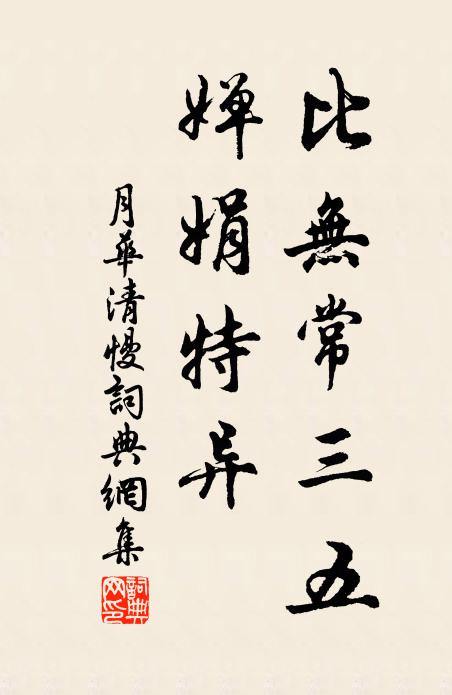 比無常三五
嬋娟特异
月華清慢詞典網集
詞典网印